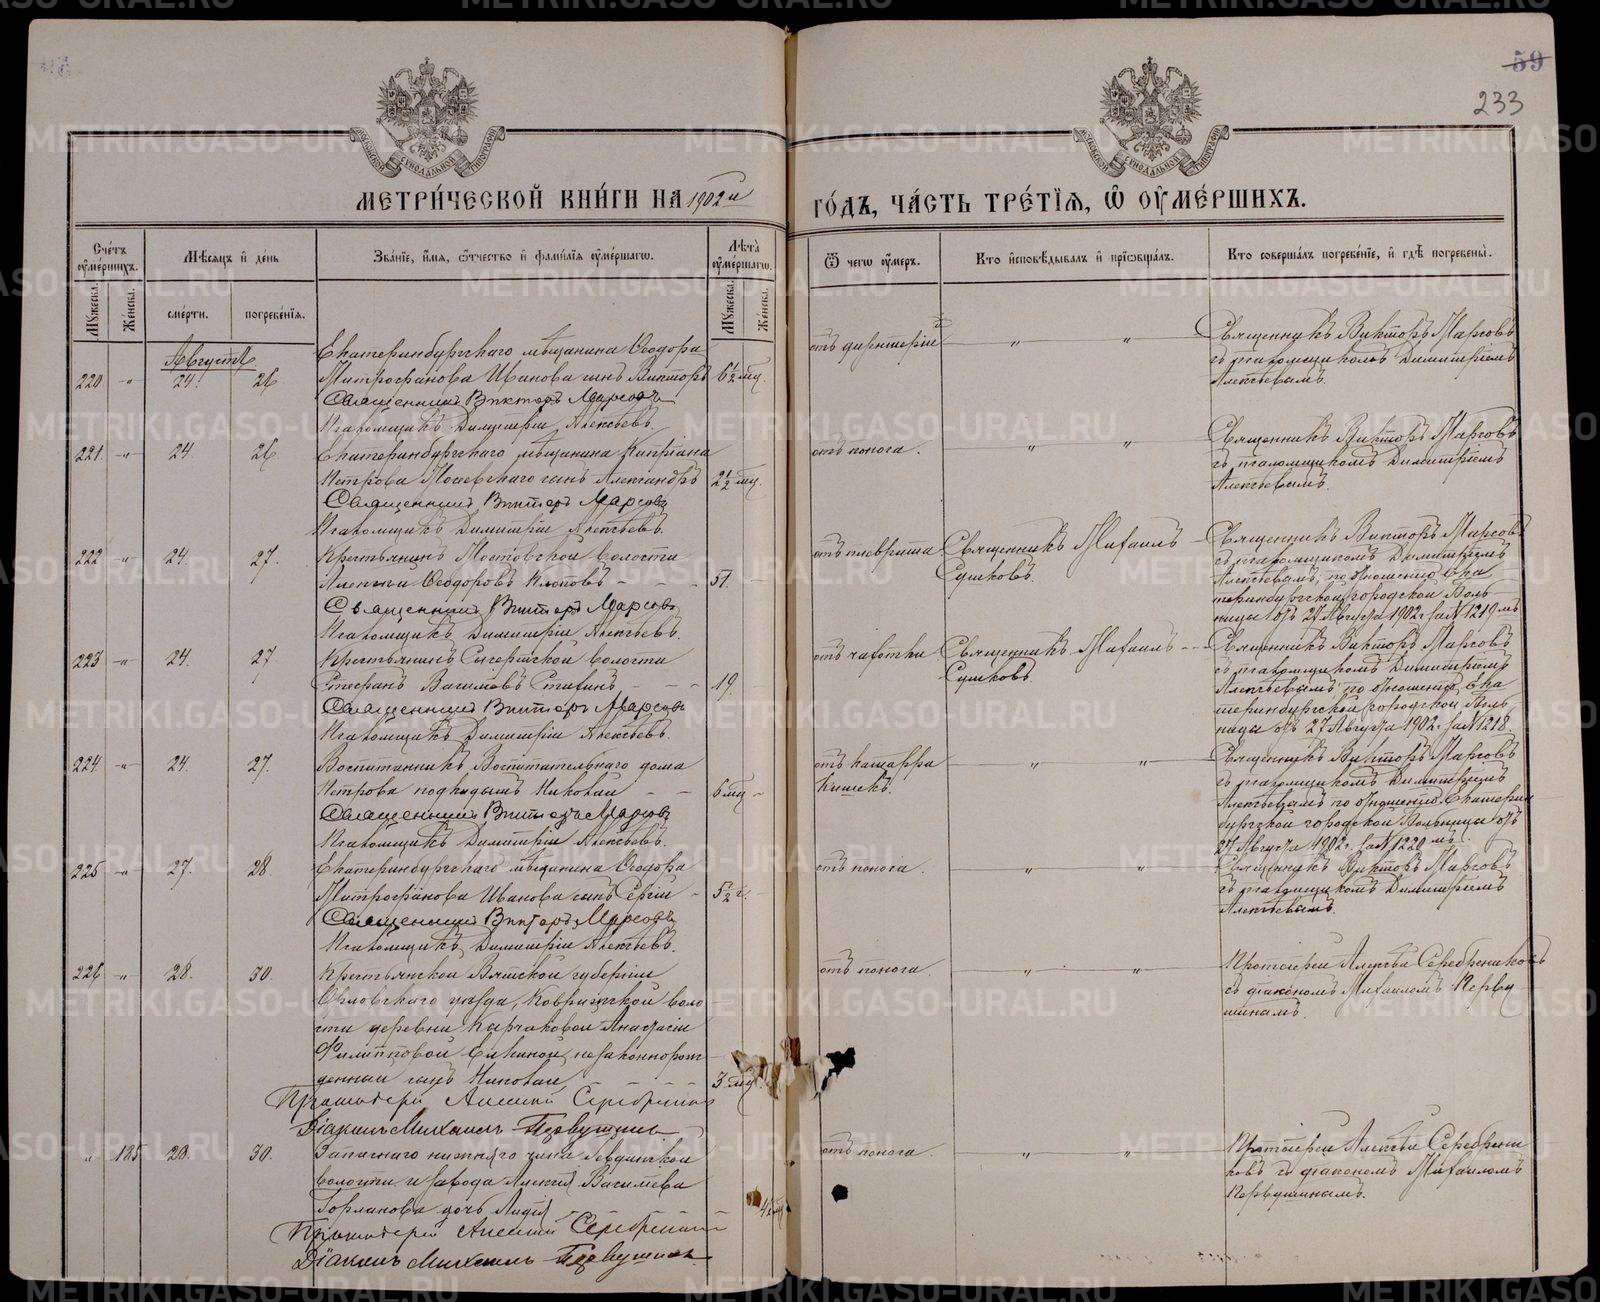 59
233
МЕТРИ́ЧЕСКОЙ КНИ́ГИ НА 1902й ГО́ДЪ, ЧА́СТЬ ТРЕ́ТІѦ, Ѽ ОУ҆МЕ́РШИХЪ.
Счетъ оумершихъ.
Мужеска.
Женска.
Мѣсяцъ и день
смерти.
погребенія.
Званіе, имя, отчество и фамилія оумершаго.
Лѣта оумершаго.
Мужеска.
Женска.
Ѿ чегѡ оумеръ.
Кто исповѣдывалъ и пріобщалъ.
Кто совершалъ погребеніе, и гдѣ погребены.
Августъ
220 " 24. 26
Екатеринбургскаго мѣщанина Ѳеодора
Митрофанова Иванова сынъ Викторъ 6½ мц.
Священникъ Викторъ Марсовъ
Псаломщикъ Димитрій Алексѣевъ.
отъ дифтеріи " "
Священникъ Викторъ Марсовъ
съ псаломщикомъ Димитріемъ
Алексѣевымъ.
221 " 24 26
Екатеринбургскаго мѣщанина Кипріана
Петрова сынъ Александръ 2½ мц.
Священникъ Викторъ Марсовъ
Псаломщикъ Димитрій Алексѣевъ.
отъ поноса. " "
Священникъ Викторъ Марсовъ
съ псаломщикомъ Димитріемъ
Алексѣевымъ.
222 " 24. 27.
Крестьянинъ Мостовской волости
Ѳеодоровъ 51.
Священникъ Викторъ Марсовъ
Псаломщикъ Димитрій Алексѣевъ.
отъ плеврита.
Священникъ Михаилъ
Сушковъ.
Священникъ Викторъ Марсовъ
съ псаломщикомъ Димитріемъ
Алексѣевымъ, по отношенію Ека
теринбургской городской Боль
ницы отъ 27 Августа 1902 г. за № 1219 мъ
223 " 24. 27
Крестьянинъ Сысертской волости
Стефанъ 19.
Священникъ Викторъ Марсовъ
Псаломщикъ Димитрій Алексѣевъ.
отъ чахотки.
Священникъ Михаилъ
Сушковъ
Священникъ Викторъ Марсовъ
съ псаломщикомъ Димитріемъ
Алексѣевымъ, по отношенію Ека
теринбургской городской Боль
ницы отъ 27 Августа 1902 г. за № 1218.
224 " 24. 27.
Воспитанникъ Воспитательнаго дома
Петрова подкидышъ Николай 6 мц
Священникъ Викторъ Марсовъ
Псаломщикъ Димитрій Алексѣевъ.
отъ катарра
кишекъ. " "
Священникъ Викторъ Марсовъ
съ псаломщикомъ Димитріемъ
Алексѣевымъ по отношенію Екатерин
бургской городской Больницы отъ
27 Августа 1902 г. за № 1220 мъ.
225 " 27. 28.
Екатеринбургскаго мѣщанина Ѳеодора
Митрофанова Иванова сынъ Сергій 5½ г.
Священникъ Викторъ Марсовъ
Псаломщикъ Димитрій Алексѣевъ.
отъ поноса. " "
Священникъ Викторъ Марсовъ
съ псаломщикомъ Димитріемъ
Алексѣевымъ.
226 " 28. 30.
Крестьянской Вятской губерніи
Орловскаго уѣзда, воло
сти деревни Анастасіи
Филипповой незаконнорож
денный сынъ Николай 3 мц.
Протоіерей Алексій Серебренниковъ
Діаконъ Михаилъ Первушинъ
отъ поноса. " "
Протоіерей Алексѣй Серебрениковъ
съ діакономъ Михаиломъ Перву
шинымъ.
" 185 28. 30.
Запаснаго нижняго чина Ревдинской
волости и завода Алексѣя Васильева
Горланова дочь Лидія
Протоіерей Алексій Серебренниковъ
Діаконъ Михаилъ Первушинъ
отъ поноса. " "
Протоіерей Алексѣй Серебрени
ковъ съ діакономъ Михаиломъ
Первушинымъ.
METRIKI.GASO-URAL.RU